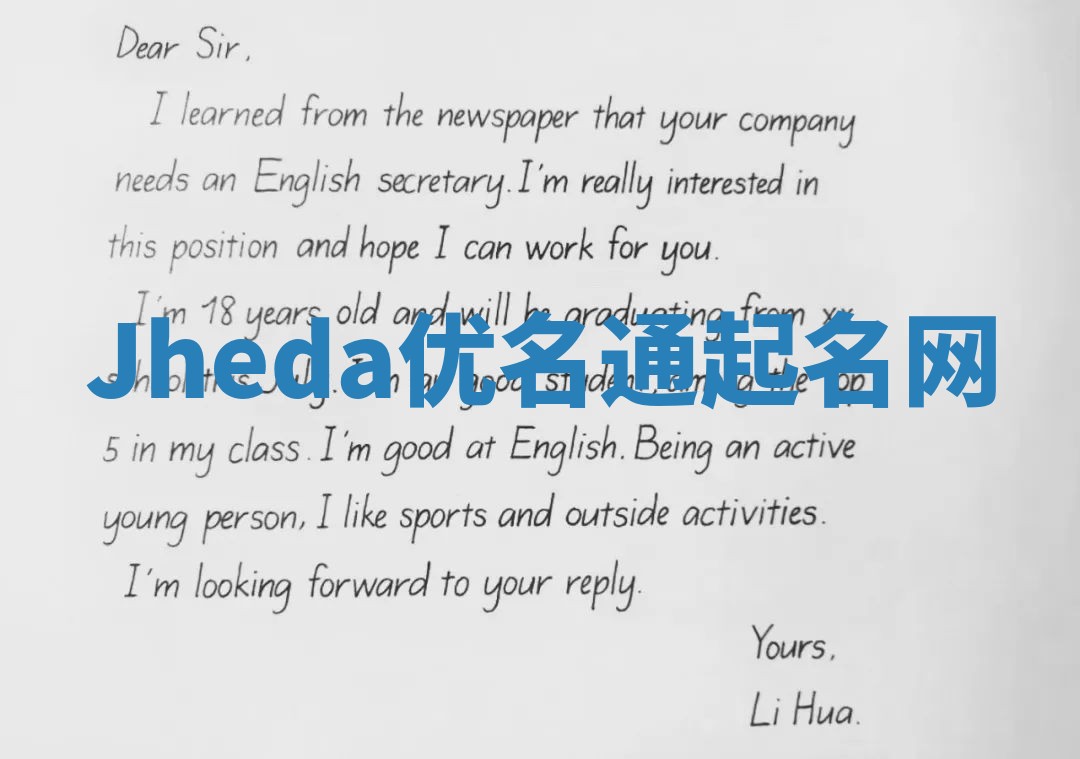 Dear Sir,
I learned from the newspaper that your company
needs an English secretary. I'm really interested in
this position and hope I can work for you.
I'm 18 years old and will be graduating from xx
Jheda优名通起名网
school this July. I'm a good student, among the top
5 in my class. I'm good at English. Being an active
young person, I like sports and outside activities.
I'm looking forward to your reply.
Yours,
Li Hua.